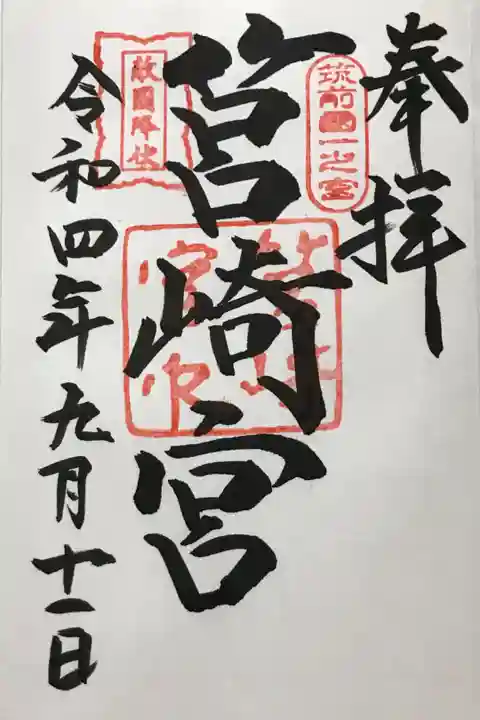 奉拝
筑前國一之宮
筥崎宮
敵國降伏
令和四年九月十一日